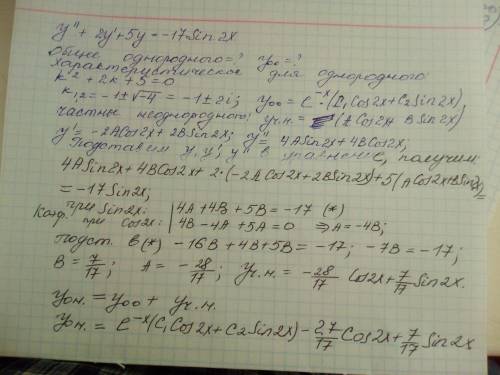 y" + 2y' + 5y = -17Sin2x
Общее однородного=? y₀₀=?
Характеристическое для однородного:
k² + 2k + 5 = 0
k₁,₂ = -1 ± √-4 = -1 ± 2i; y₀₀ = e⁻ˣ·(C₁Cos2x + C₂Sin2x)
частные неоднородного: yч.н. = (ACos2x + BSin2x)
y' = -2ACos2x + 2BSin2x; y" = 4ASin2x + 4BCos2x;
Подставляем y, y', y" в уравнение, получим
4ASin2x + 4BCos2x + 2·(-2ACos2x + 2BSin2x) + 5(ACos2x + BSin2x) =
= -17Sin2x;
Коэф. при Sin2x: | 4A + 4B + 5B = -17 (*)
при Cos2x: | 4B - 4A + 5A = 0 ⇒ A = -4B;
Подст. в (*) -16B + 4B + 5B = -17; -7B = -17;
B = 7/17; A = -28/17; yч.н. = -28/17 Cos2x + 7/17 Sin2x.
yон. = y₀₀ + yч.н.
yон. = e⁻ˣ(C₁Cos2x + C₂Sin2x) - 27/17 Cos2x + 7/17 Sin2x